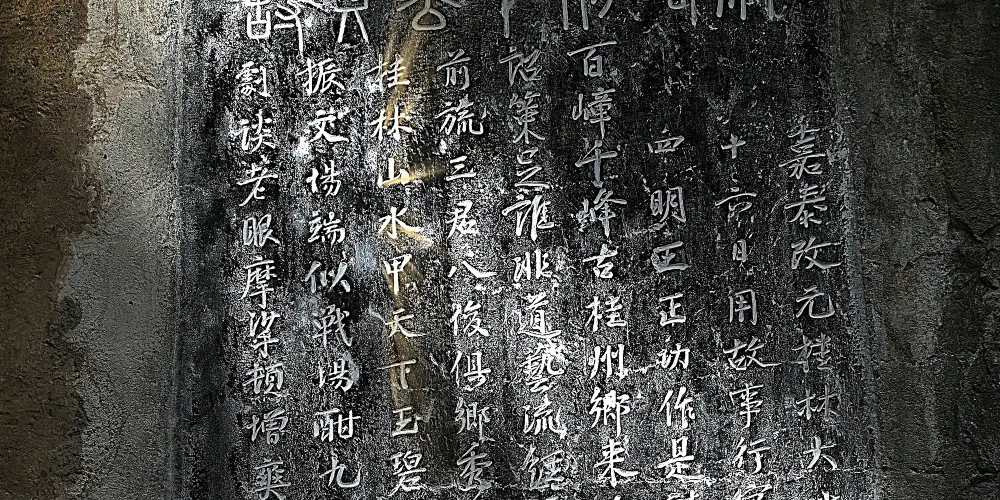 嘉泰改元桂林大
十六日用故事行
四明王正功作是
百嶂千峰古桂州鄉來
詔策足誰非道藝流經
前旒三君八俊俱鄉秀
桂林山水甲天下玉碧
振文場端似戰場酣九
劇談老眼摩挲頓增爽